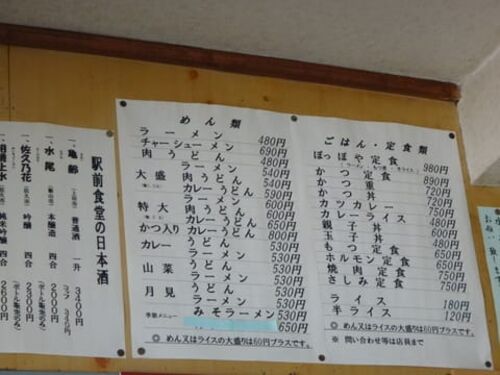 駅前食堂の日本酒
一、亀齢 普通酒 一升 3400円
コップ 345円
一、水尾 本醸造 四合 2000円
一、佐久乃花 吟醸 四合 2300円
(ボトル販売のみ)
純米吟醸 四合 2600円
(ボトル販売のみ)
めん類
ラーメン 480円
チャーシューメン 690円
肉うどん
大盛
カレーうどん
特大
肉うどん
カレーうどん
かつ入り カレーうどん 650円
カレー うどん 530円
ラーメン 530円
山菜 うどん 530円
ラーメン 530円
月見 うどん 530円
ラーメン 530円
季節メニュー みそラーメン 530円
650円
◎ めん又はライスの大盛りは60円プラスです。
ごはん・定食類
ぽっぽや定食 980円
かつ定食 890円
かつ重 720円
かつ丼 720円
カツカレー 750円
カレーライス
親子丼
玉子丼
もつ定食 650円
ホルモン定食 650円
焼肉定食 750円
さしみ定食 750円
ライス 180円
半ライス 120円
◎ めん又はライスの大盛りは60円プラスです。
※ 問い合わせ等は店員まで